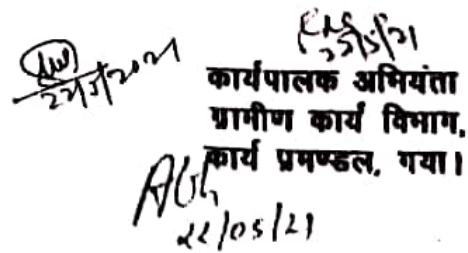 22/5/2021
कार्यपालक अभियंता
ग्रामीण कार्य विभाग,
कार्य प्रमण्डल, गया।
22/05/21